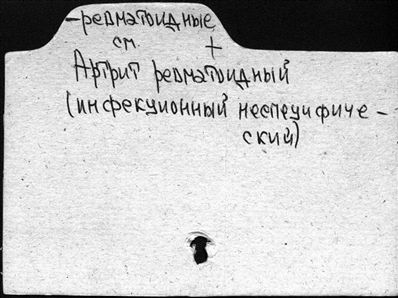 -ревматоидные
см. +
Артрит ревматоидный
(инфекционный неспецифиче-
ский)